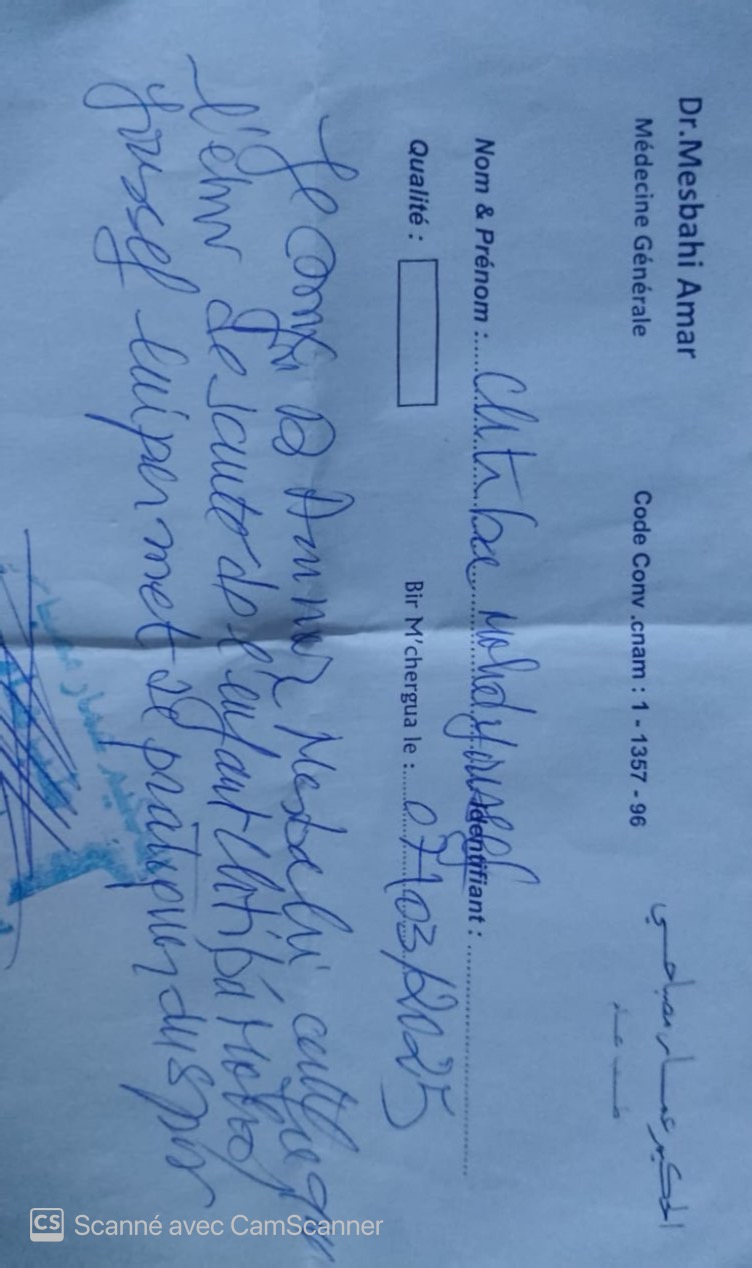 Dr.Mesbahi Amar
Médecine Générale
Code Conv .cnam : 1 - 1357 - 96
الحكيم عمار مصباحي
طب عام
Nom & Prénom : Chtiba Mohed Youssef Identifiant :
Qualité :
Bir M'chergua le : 07/03/2025
Je Dr Ammar Mesbahi que
l'état de santé de l'enfant Chtiba Mohed
Youssef lui permet de pratiquer du sport
CS Scanné avec CamScanner